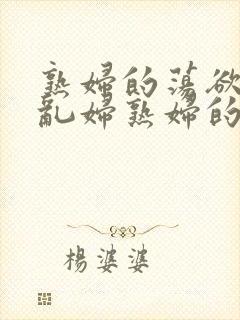 熟婦的蕩欲
亂婦熟婦的
楊婆婆